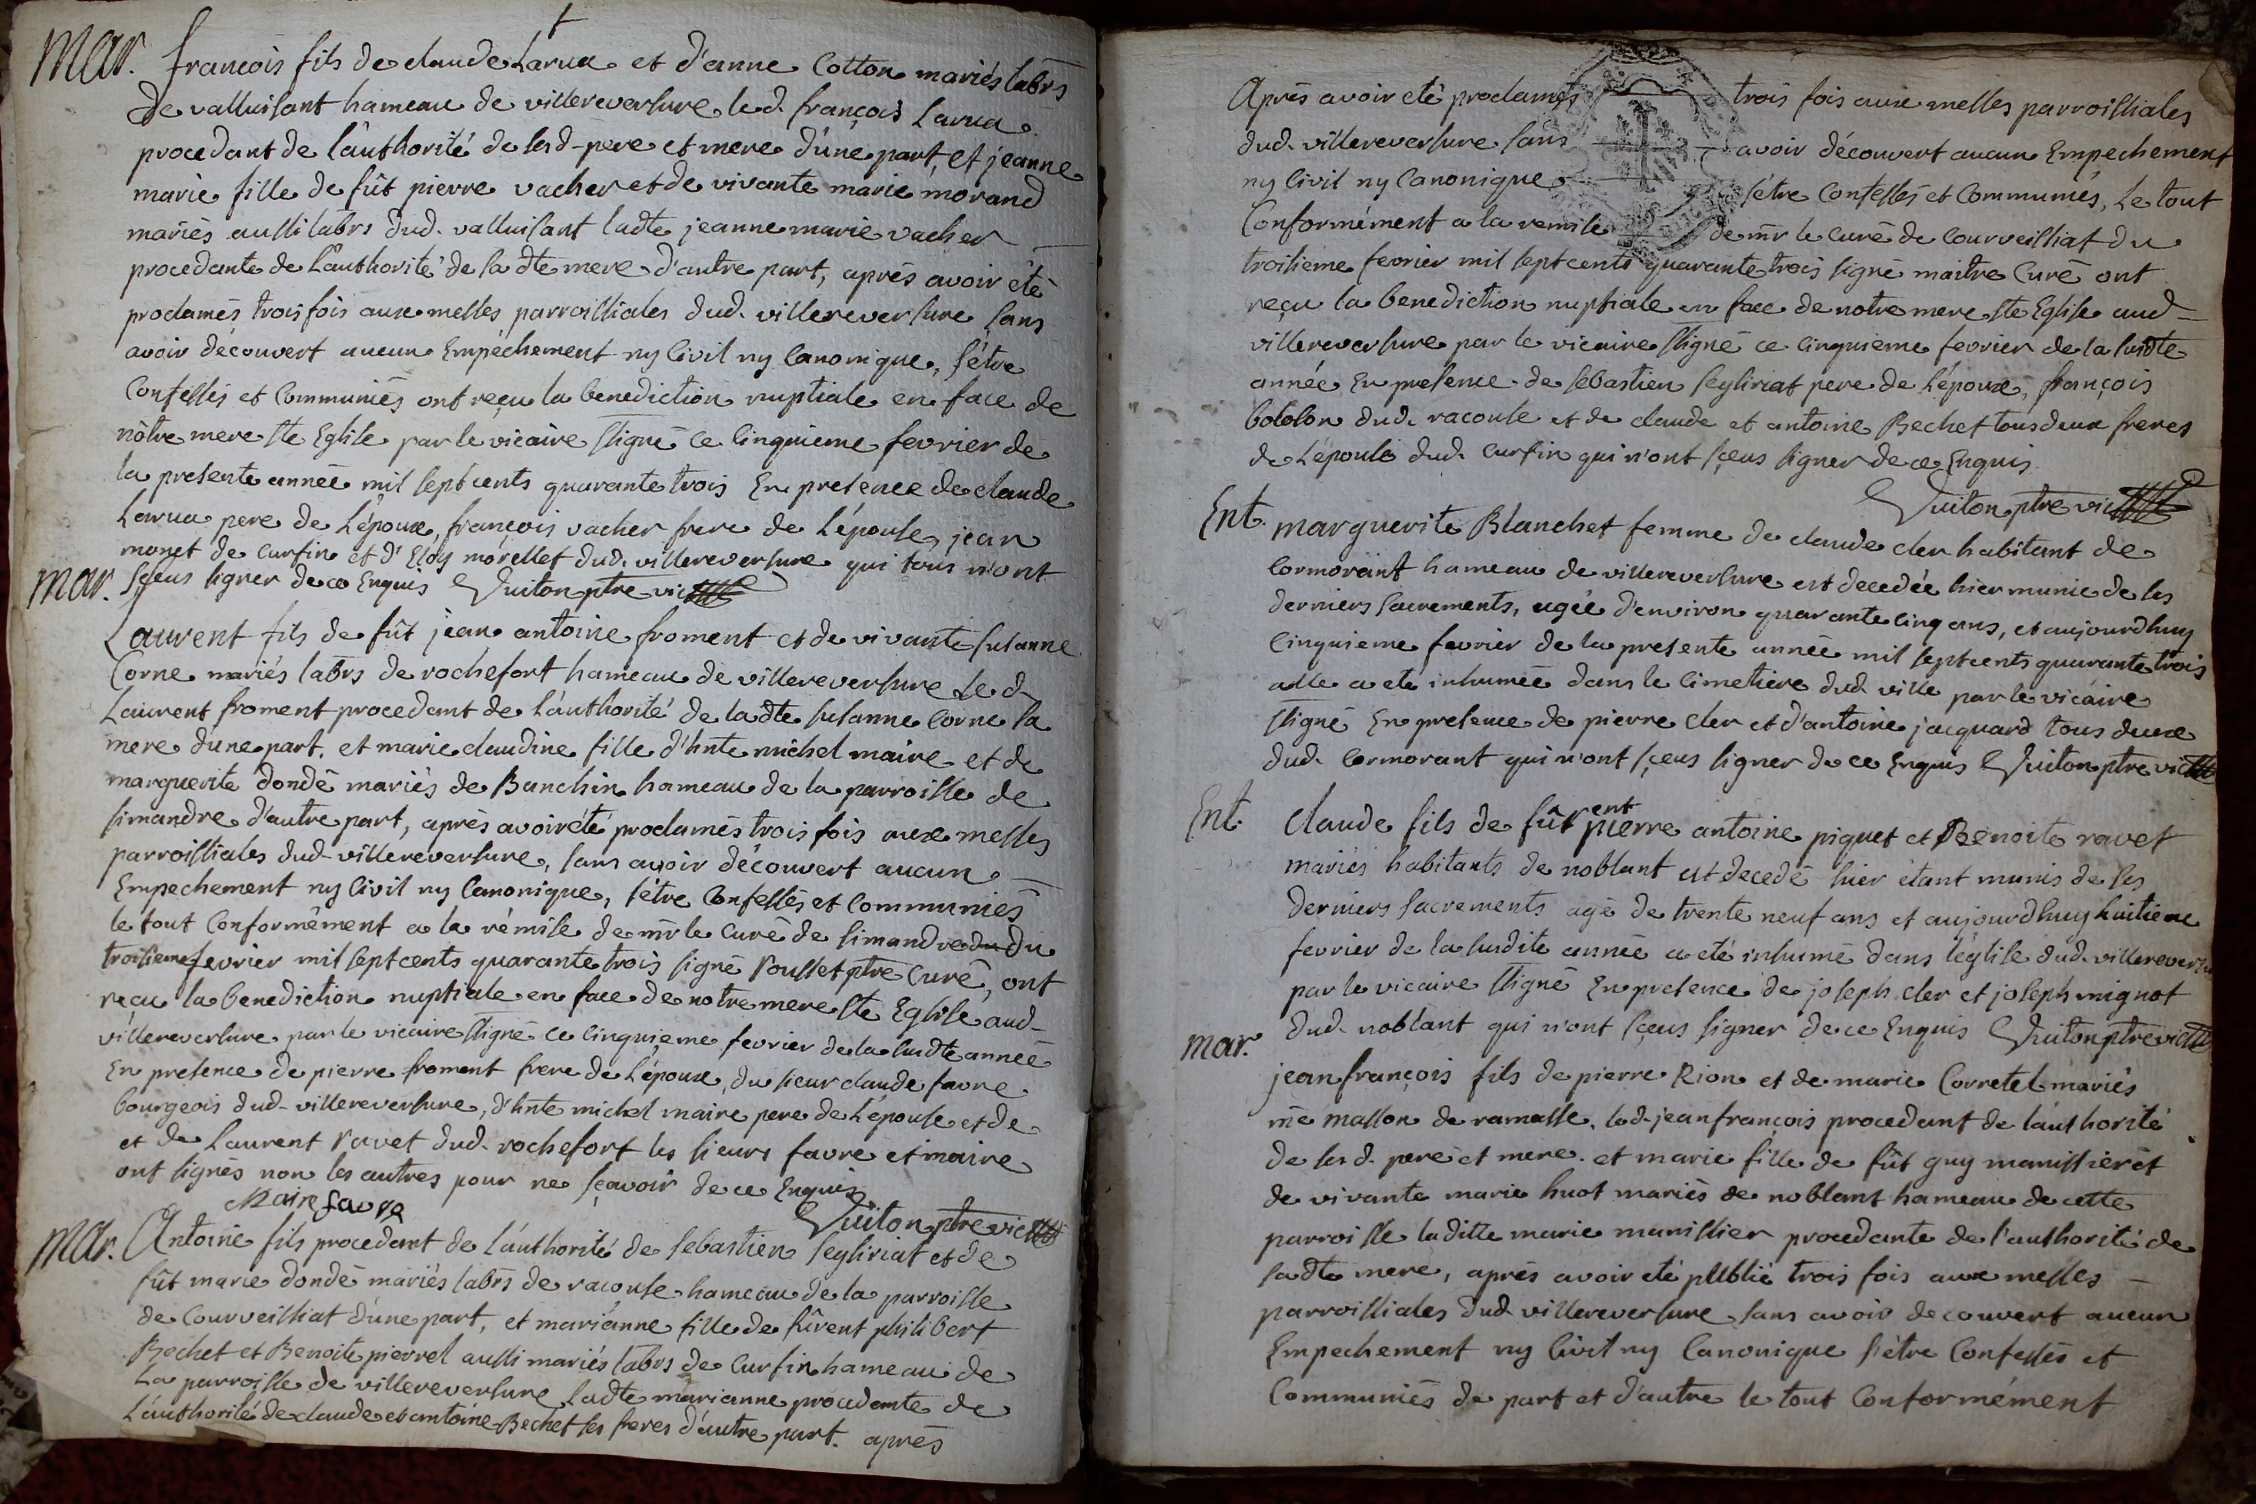 Mar. françois fils de claude Larua et d'anne Cotton mariés labrs
de valluisant hameau de villereversure led. françois Larua
procedant de l'authorité de sesd. pere et mere d'une part, et jeanne
marie fille de fût pierre vacher et de vivante marie morand
mariés aussi labrs dud. valluisant ladte jeanne marie vacher
procedante de l'authorité de sa dte mere d'autre part, après avoir été
proclamés trois fois aux messes parroissiales dud. villereversure sans
avoir découvert aucun Empéchement ny Civil ny Canonique, s'étre
Confessés et Communiés ont reçu la benediction nuptiale en face de
nôtre mere ste Eglise par le vicaire ssigné ce Cinquieme fevrier de
la presente année mil sept cents quarante trois En presence de claude
Larua pere de L'époux, françois vacher frere de L'épouse, jean
monet de curfin et d'Eloy morellet dud. villereversure qui tous n'ont
sçeus signer de ce Enquis Vuiton ptre vic
Mar. Laurent fils de fût jean antoine froment et de vivante susanne
Corne mariés labrs de rochefort hameau de villereversure Le d.
Laurent froment procedant de L'authorité de ladte susanne Corne sa
mere d'une part. et marie claudine fille d'hnte michel maire et de
marguerite dondé mariés de Banchin hameau de la parroisse de
simandre d'autre part, après avoir été proclamés trois fois aux messes
parroissiales dud. villereversure, sans avoir découvert aucun
Empechement ny Civil ny Canonique, s'étre Confessés et Communiés
le tout Conformément a la rémise de mr le Curé de simandre du du
troisieme fevrier mil sept cents quarante trois signé roussel ptre Curé, ont
reçu la benediction nuptiale en face de notre mere ste Eglise aud.
villereversure par le vicaire ssigné ce cinquieme fevrier de la susdte année
En presence de pierre froment frere de L'époux, du sieur claude favre
bourgeois dud. villereversure, d'hnte michel maire pere de L'épouse et de
et de Laurent ravet dud. rochefort les sieurs favre et maire
ont signés non les autres pour ne sçavoir de ce Enquis
Maire favre Vuiton ptre vic
Mar. Antoine fils procedant de L'authorité de sebastien segliriat et de
fût marie dondé mariés labrs de racouse hameau de la parroisse
de Courveissiat d'une part, et marianne fille de fûrent philibert
Bechet et Benoite pierrel aussi mariés labrs de Curfin hameau de
La parroisse de villereversure ladte marianne procedante de
L'authorité de claude et antoine Bechet ses freres d'autre part. après
Après avoir eté proclamés trois fois aux messes parroissiales
dud. villereversure sans avoir découvert aucun Empechement
ny Civil ny Canonique s'étre Confessés et Communiés, Le tout
Conformément a la remise de mr le Curé de Courveissiat du
troisieme fevrier mil sept cents quarante trois signé maitre Curé ont
reçu la benediction nuptiale en face de notre mere ste Eglise aud.
villereversure par le vicaire ssigné ce Cinquieme fevrier de la susdte
année En presence de sebastien segliriat pere de L'époux, françois
bololon dud. racouse et de claude et antoine Bechet tous deux freres
de L'épouse dud. Curfin qui n'ont sçeus signer de ce Enquis
Vuiton ptre vic
Ent. marguerite Blanchet femme de claude cler habitant de
Cormorant hameau de villereversure est decedée hier munie de ses
derniers sacrements, agée d'environ quarante cinq ans, et aujourdhuy
Cinquieme fevrier de la presente année mil sept cents quarante trois
elle a eté inhumée dans le Cimetiere dud. ville par le vicaire
ssigné En presence de pierre cler et d'antoine jacquard tous deux
dud. Cormorant qui n'ont sçeus signer de ce Enquis Vuiton ptre vic
Ent. Claude fils de fûrent pierre antoine piquet et Benoite ravet
mariés habitants de noblant est decedé hier étant munis de ses
derniers sacrements agé de trente neuf ans et aujourdhuy huitieme
fevrier de la susdite année a eté inhumé dans l'église dud. villereversu
par le vicaire ssigné En presence de joseph cler et joseph mignot
dud. noblant qui n'ont sçeus signer de ce Enquis Vuiton ptre vic
Mar. jean françois fils de pierre Rion et de marie Corretel mariés
me masson de ramasse. led. jean françois procedant de l'authorité
de sesd. pere et mere. et marie fille de fût guy manissier et
de vivante marie huot mariés de noblant hameau de cette
parroisse laditte marie manissier procedante de l'authorité de
sadte mere, après avoir eté publié trois fois aux messes
parroissiales dud. villereversure sans avoir decouvert aucun
Empechement ny Civil ny Canonique s'étre Confessés et
Communiés de part et d'autre le tout Conformément